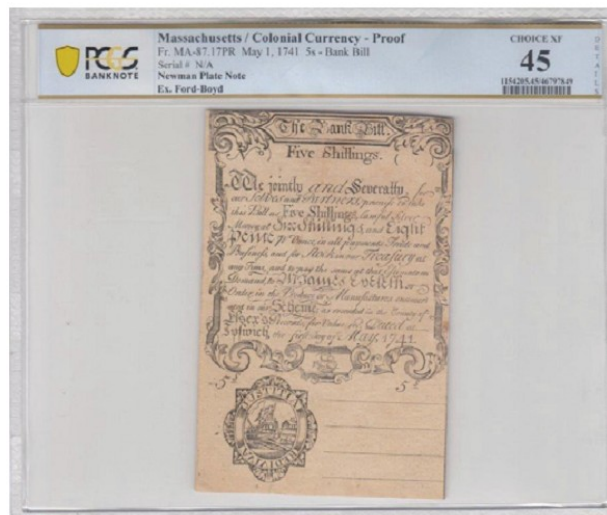 PCGS
BANKNOTE
Massachusetts / Colonial Currency - Proof
Fr. MA-87.17PR May 1, 1741 5s - Bank Bill
Serial # N/A
Newman Plate Note
Ex. Ford-Boyd
CHOICE XF
45
1154205.45/46797849
DETAILS
The Bank Bill.
Five Shillings.
We jointly and Severally, for
our Selves and Partners, promise to take
this Bill as Five Shillings, lawful Silver
Money at Six Shillings and Eight
Pence Ounce, in all payments, Trade and
Business, and for Stock in our Treasury at
any Time, and to pay the same at that
Demand, to Mr James Eveleth or
Order, in the Produce or Manufactures
in our Scheme as recorded in the County of
Essex's Records, for Value Dated at
Ipswich the first day of May, 1741.
5 5
JUSTITIA